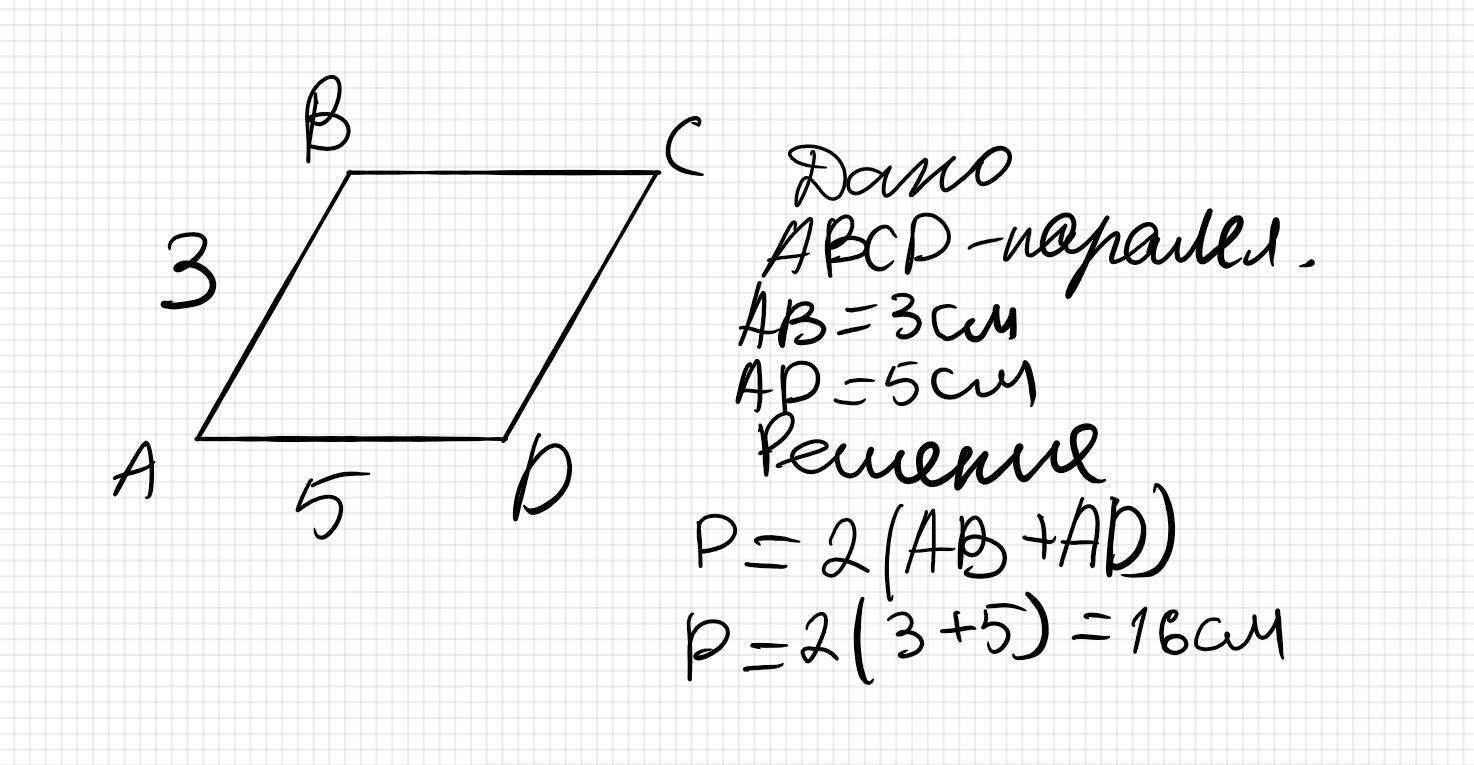 B
C
3
A
5
D
Дано
ABCD - паралл.
AB = 3 см
AD = 5 см
Решение
P = 2(AB + AD)
P = 2(3 + 5) = 16 см